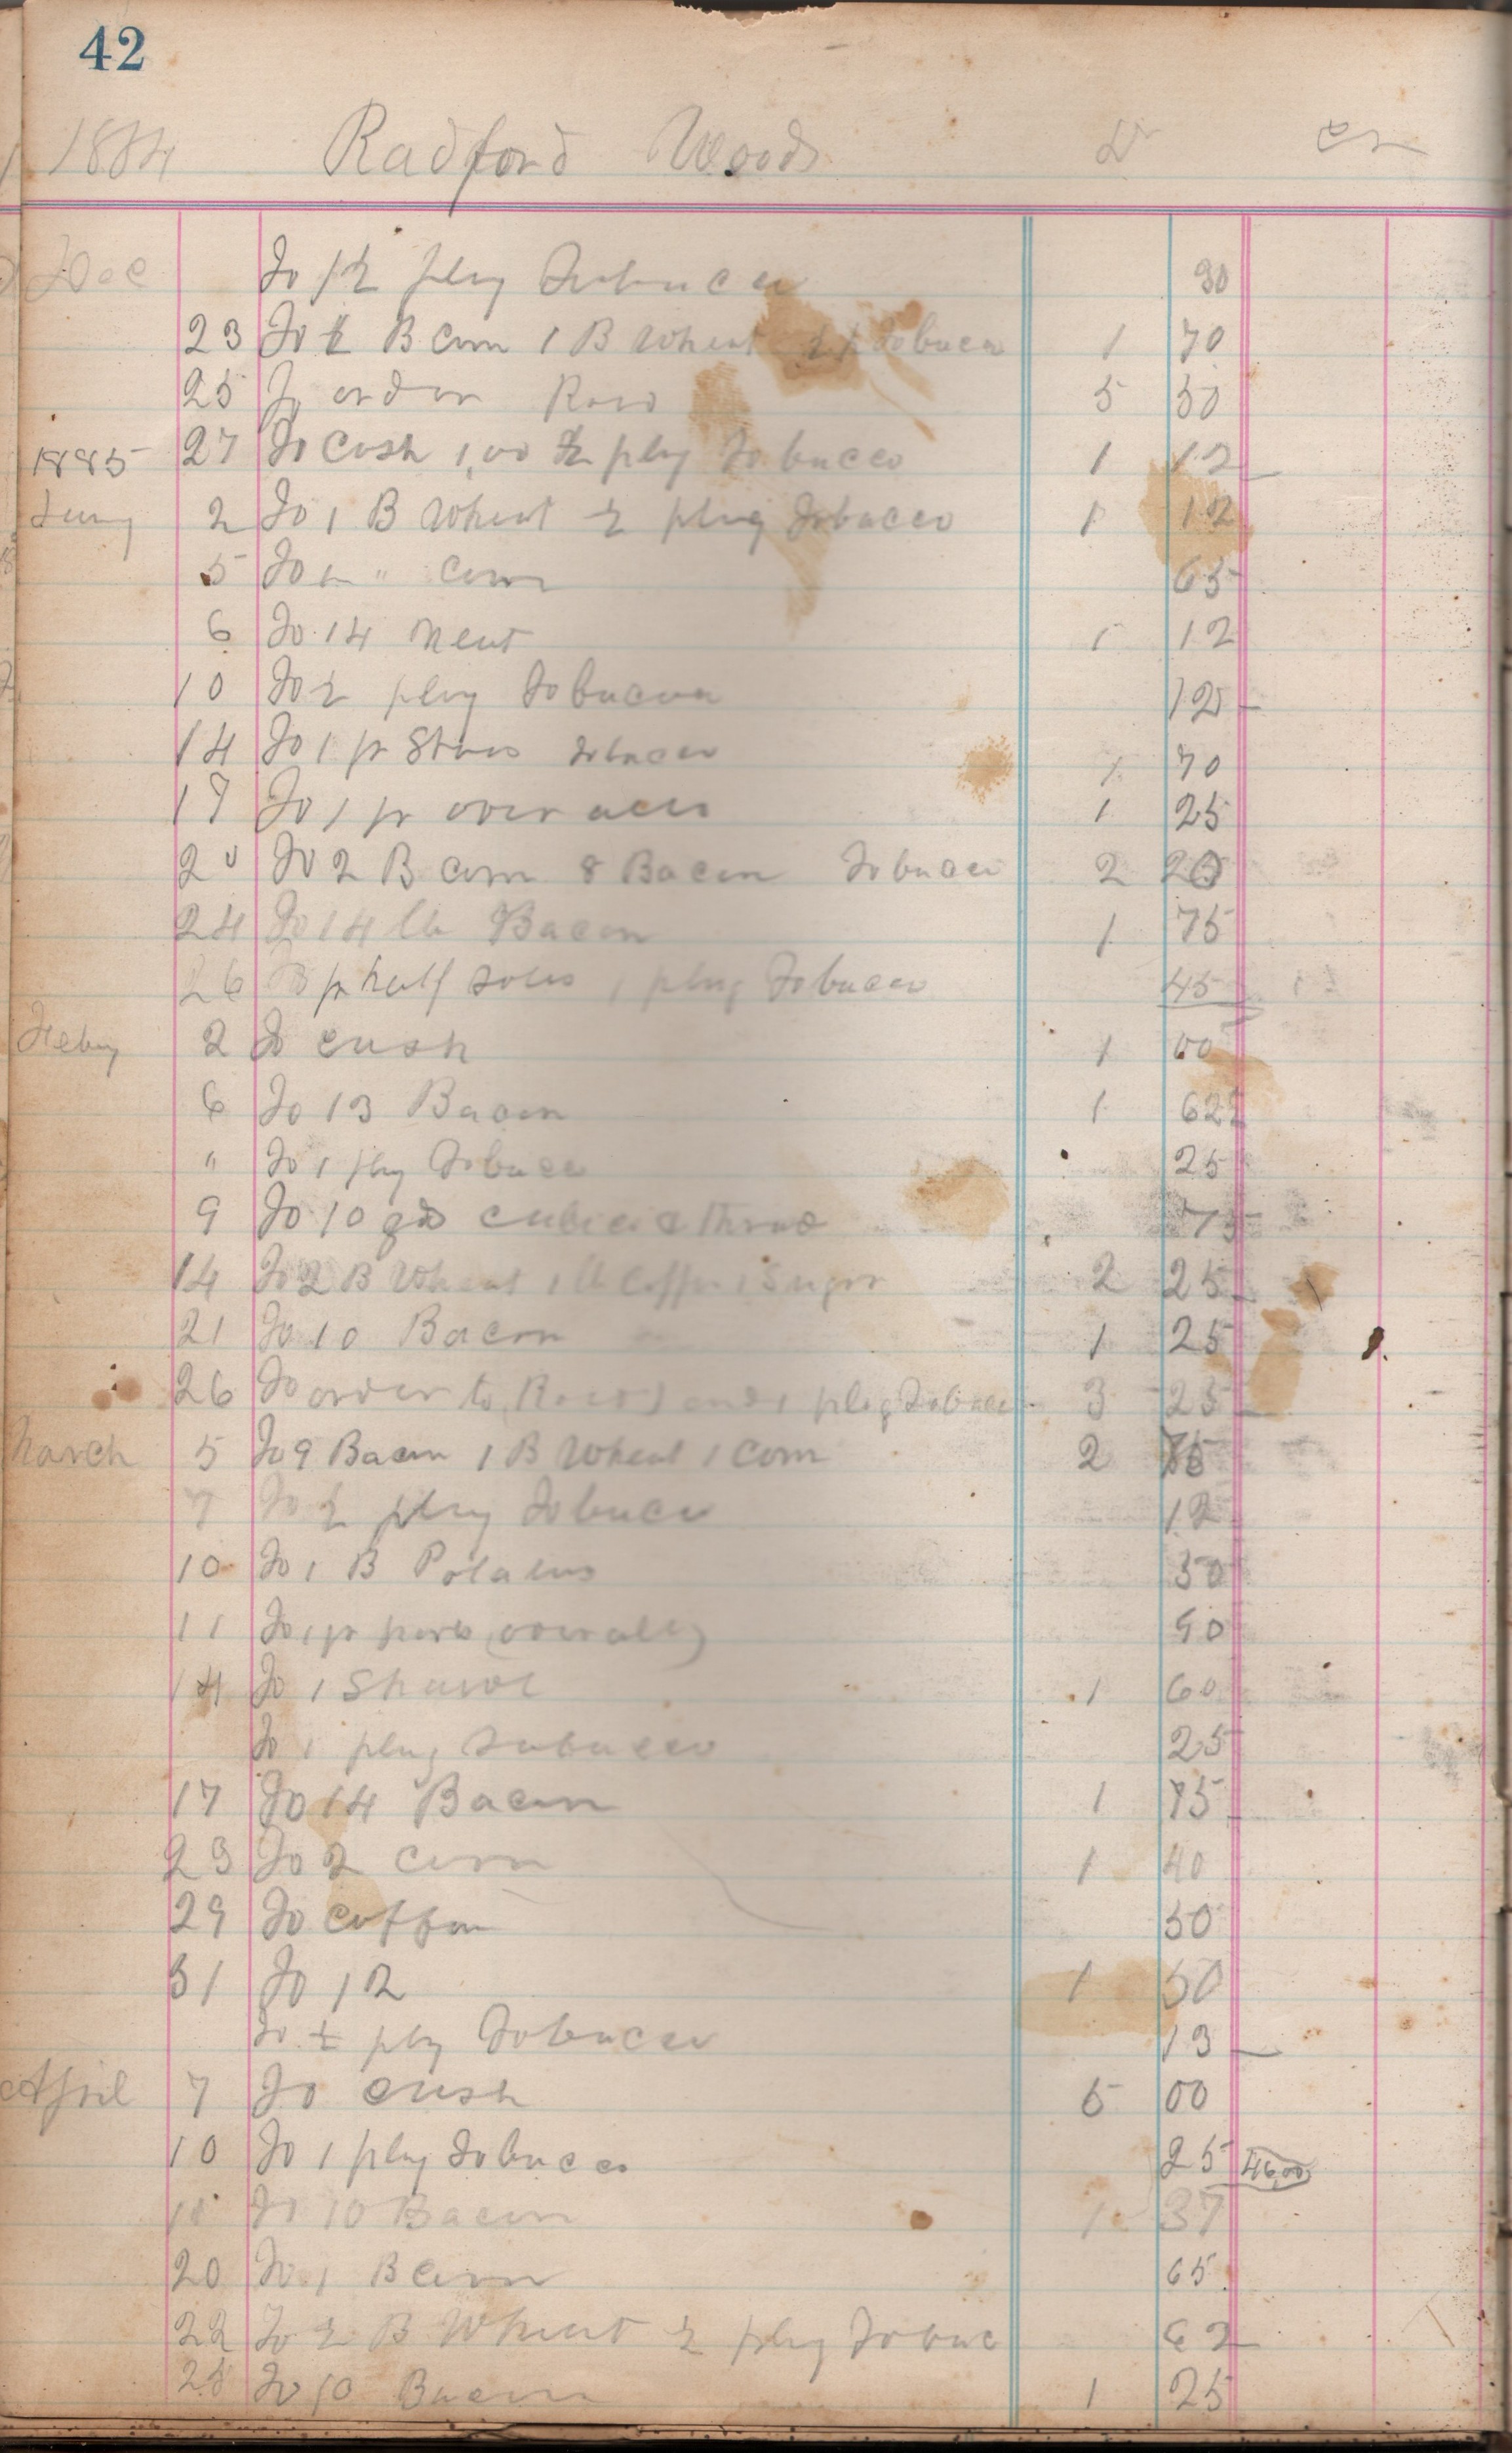 42
1884 Radford Woods Dr Cr
Dec To 1/2 plug Tobacco 30
23 To B Corn 1 B Wheat Tobacco 1 70
25 To order 5 50
27 To Cash 1,00 1/2 plug Tobacco 1 12
1885
2 To 1 B Wheat 1/2 plug Tobacco 1 12
5 To " Corn 65
6 To 14 Meat 1 12
10 To 1/2 plug Tobacco 12
14 To 1 pr Shoes Tobacco 1 70
17 To 1 pr overalls 1 25
20 To 2 B Corn 8 Bacon Tobacco 2 20
24 To 14 lb Bacon 1 75
26 pr half soles 1 plug Tobacco 45
Feby 2 To cash 1 00
6 To 13 Bacon 1 62
" To 1 plug Tobacco 25
9 To 10 yds calico & Thread 75
14 To 2 B Wheat 1 lb Coffee 1 Sugar 2 25
21 To 10 Bacon 1 25
26 To order to and 1 plug Tobacco 3 25
March 5 To 9 Bacon 1 B Wheat 1 Corn 2 75
7 To 1/2 plug Tobacco 12
10 To 1 B Potatoes 50
11 To 1 pr overalls 90
14 To 1 1 60
To 1 plug Tobacco 25
17 To 14 Bacon 1 75
23 To 2 Corn 1 40
29 To Coffee 50
31 To 12 1 50
To 1/2 plug Tobacco 13
April 7 To cash 5 00
10 To 1 plug Tobacco 25 46,00
18 To 10 Bacon 1 37
20 To 1 B Corn 65
22 To 1/2 B Wheat 1/2 plug Tobac 62
28 To 10 Bacon 1 25